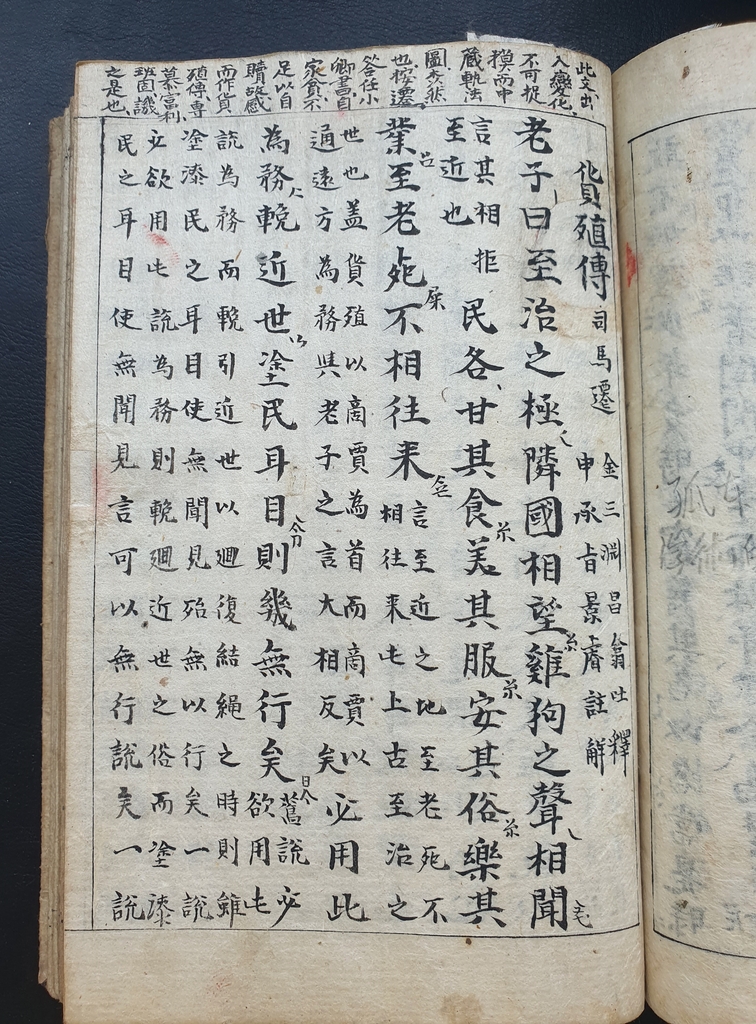 此文出
入變化
不可捉
摸而中
藏軌法
圖考然
也按遷
答任小
卿書自
家貧不
足以自
贖故感
而作貨
殖傳專
慕富利
班固譏
之是也
貨殖傳 司馬遷 金三淵昌翕吐釋
申承旨景濬註解
老子曰至治之極隣國相望雞狗之聲相聞
言其相距
至近也
民各甘其食美其服安其俗樂其
業至老死不相往来
言至近之地至老死不
相往来此上古至治之
世也盖貨殖以商賈為首而商賈以
通遠方為務與老子之言大相反矣
必用此
為務輓近世塗民耳目則幾無行矣
鷟說必
欲用此
說為務而輓引近世以廻復結繩之時則雖
塗漆民之耳目使無聞見殆無以行矣一說
必欲用此說為務則輓廻近世之俗而塗漆
民之耳目使無聞見言可以無行說矣一說